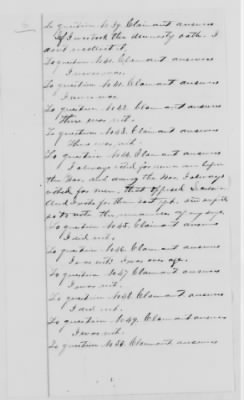 To question No 39. Claimant answers
If I ever took the amnesty oath. I
dont recollect it.
To question No 40. Claimant answers
I never was.
To question No 41. Claimant answers
I never was.
To question No 42. Claimant answers
There was not.
To question No 43. Claimant answers
There was not.
To question No 44. Claimant answers
I always voted for union men before
the War. and during the War I always
voted for men, that opposed
And I vote for them
to vote the remainder of my days.
To question No 45. Claimant answers
I did not.
To question No 46. Claimant answers
I was not. I was over age.
To question No 47. Claimant answers
I was not.
To question No 48. Claimant answers
I did not.
To question No 49. Claimant answers
I was not.
To question No 50. Claimant answers